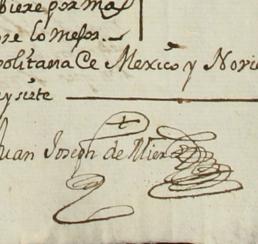 biere por ma
re lo mejor.
politana Ce Mexico y Novie
y siete
Juan Joseph de Miera